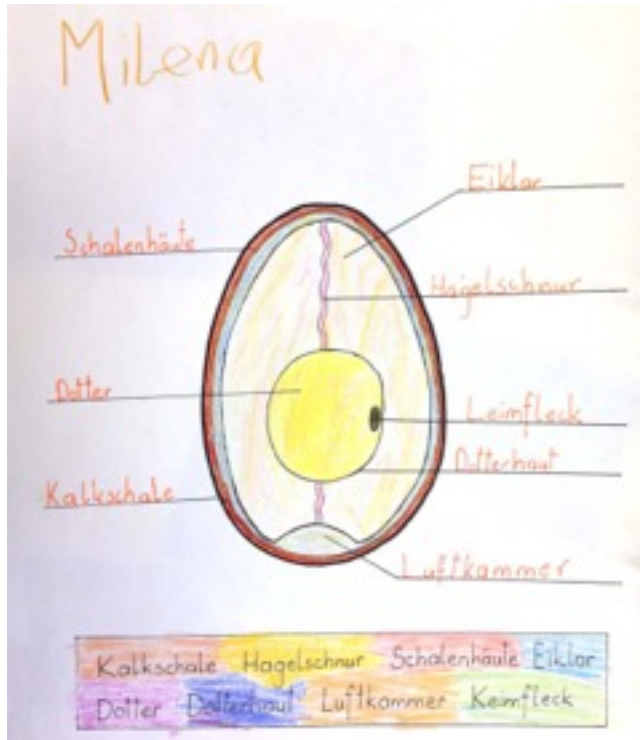 Milena
Eiklar
Schalenhäute
Hagelschnur
Dotter
Leimfleck
Dotterhaut
Kalkschale
Luftkammer
Kalkschale Hagelschnur Schalenhäute Eiklar
Dotter Dotterhaut Luftkammer Keimfleck